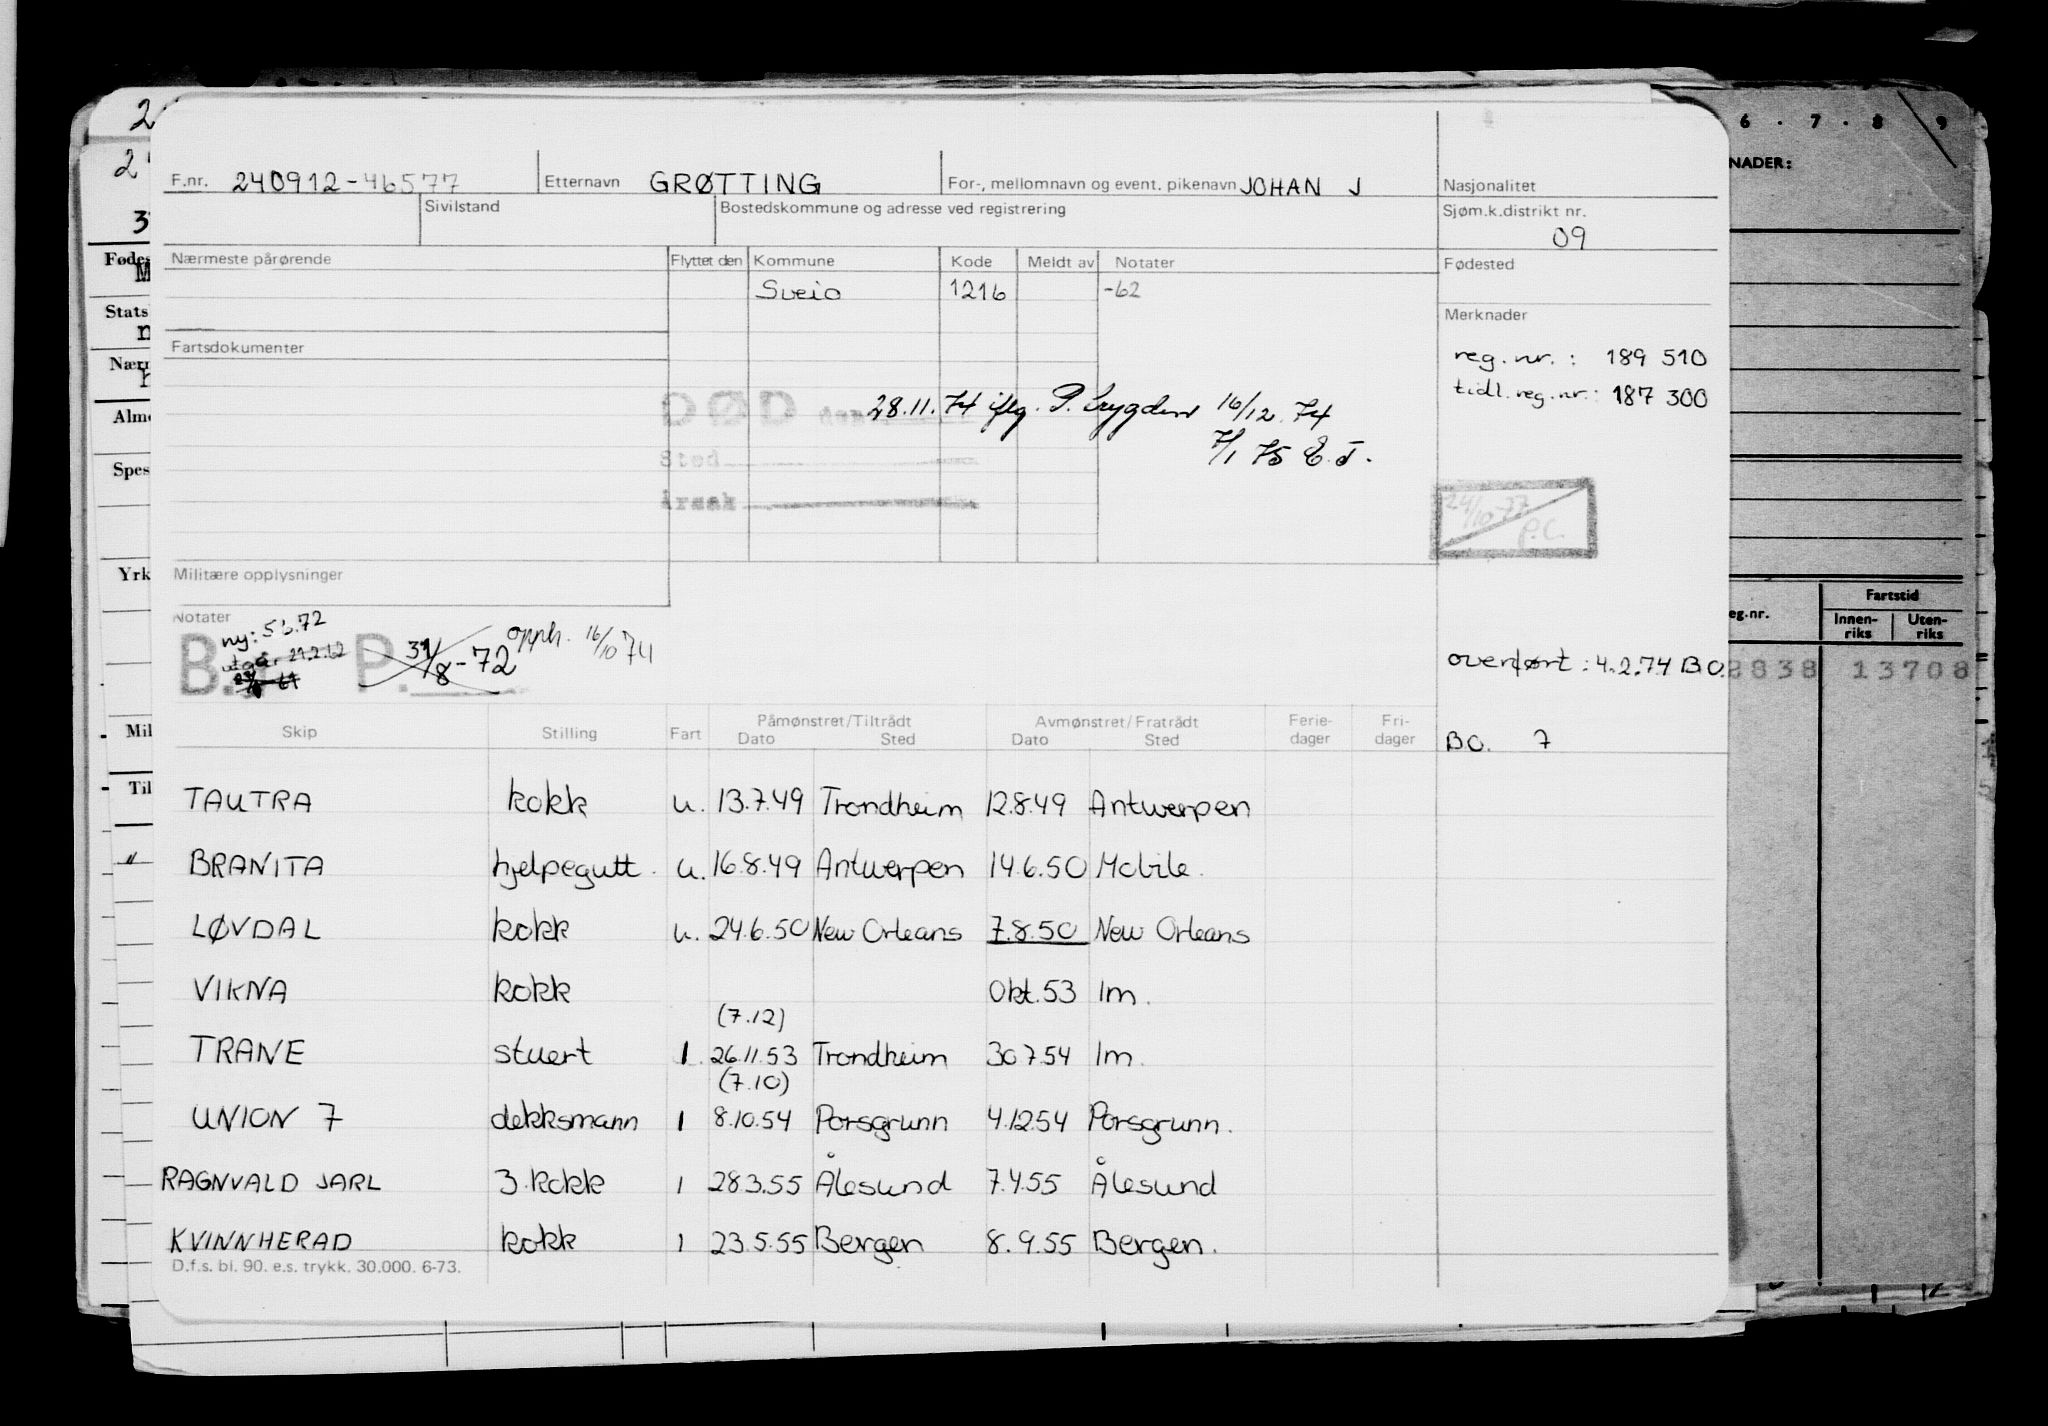 F.nr. 240912-46577 Etternavn GRØTTING For-, mellomnavn og event. pikenavn JOHAN J Nasjonalitet
Sivilstand Bostedskommune og adresse ved registrering Sjøm.k.distrikt nr.
09
Nærmeste pårørende Flyttet den Kommune Kode Meldt av Notater Fødested
Sveio 1216 -62
Merknader
Fartsdokumenter
reg.nr.: 189 510
tidl.reg.nr.: 187 300
DØD den 28.11.74 iflg. 16/12.74
7/1 75 E.J.
Sted
Årsak
24/10-77
P.C.
Militære opplysninger
Notater
B. ny: 72
utgår 21.2.62
67
P. 31/8-72 opph. 16/10 74
overført: 4.2.74 B.O.
Skip Stilling Fart Påmønstret/Tiltrådt Avmønstret/Fratrådt Ferie- Fri-
Dato Sted Dato Sted dager dager
B.O. 7
TAUTRA kokk u. 13.7.49 Trondheim 12.8.49 Antwerpen
BRANITA hjelpegutt. u. 16.8.49 Antwerpen 14.6.50 Mobile.
LØVDAL kokk u. 24.6.50 New Orleans 7.8.50 New Orleans
VIKNA kokk Okt.53 Im.
(7.12)
TRANE stuert 1. 26.11.53 Trondheim 30.7.54 Im.
(7.10)
UNION 7 dekksmann 1 8.10.54 Porsgrunn 4.12.54 Porsgrunn.
RAGNVALD JARL 3.kokk 1 28.3.55 Ålesund 7.4.55 Ålesund
KVINNHERAD kokk 1 23.5.55 Bergen 8.9.55 Bergen.
D.f.s. bl. 90. e.s. trykk. 30.000. 6-73.
2
3
Fødes
Stats
Nær
Alm
Spes
Yrk
Mil
Til
6 . 7 . 8 9
NADER:
eg.nr. Fartstid
Innen-riks Uten-riks
8838 13708